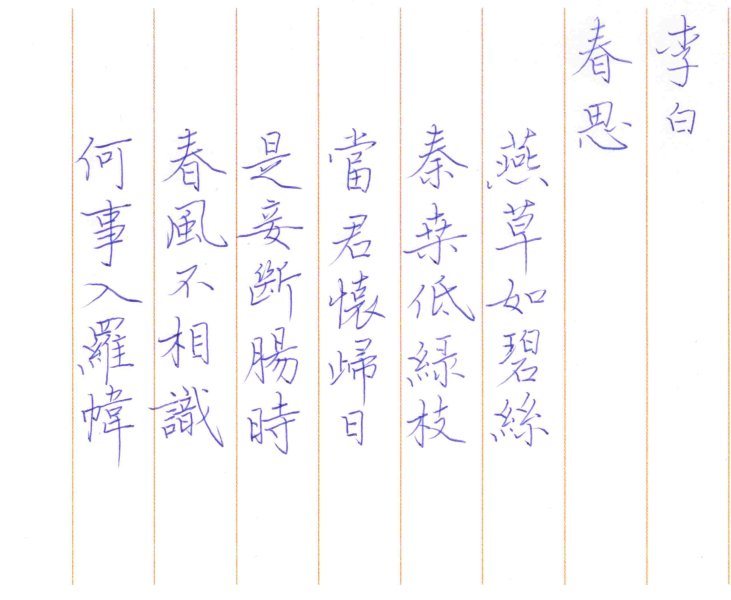 李白
春思
燕草如碧絲
秦桑低綠枝
當君懷歸日
是妾斷腸時
春風不相識
何事入羅幃